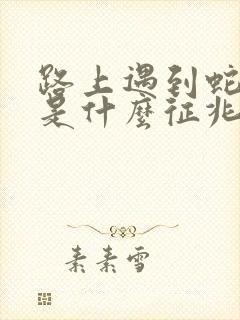 路上遇到蛇
是什麼征兆
素素雪